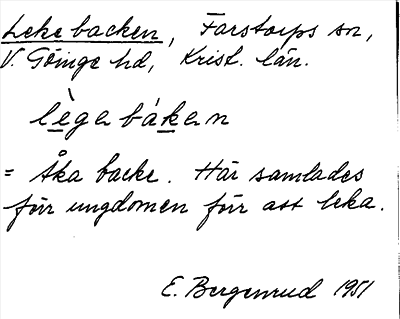 Lekebacken, Farstorps sn,
V. Göinge hd, Krist. län.
lègabákan
= Åka backe. Här samlades
förr ungdomen för att leka.
E. Bergenrud 1951